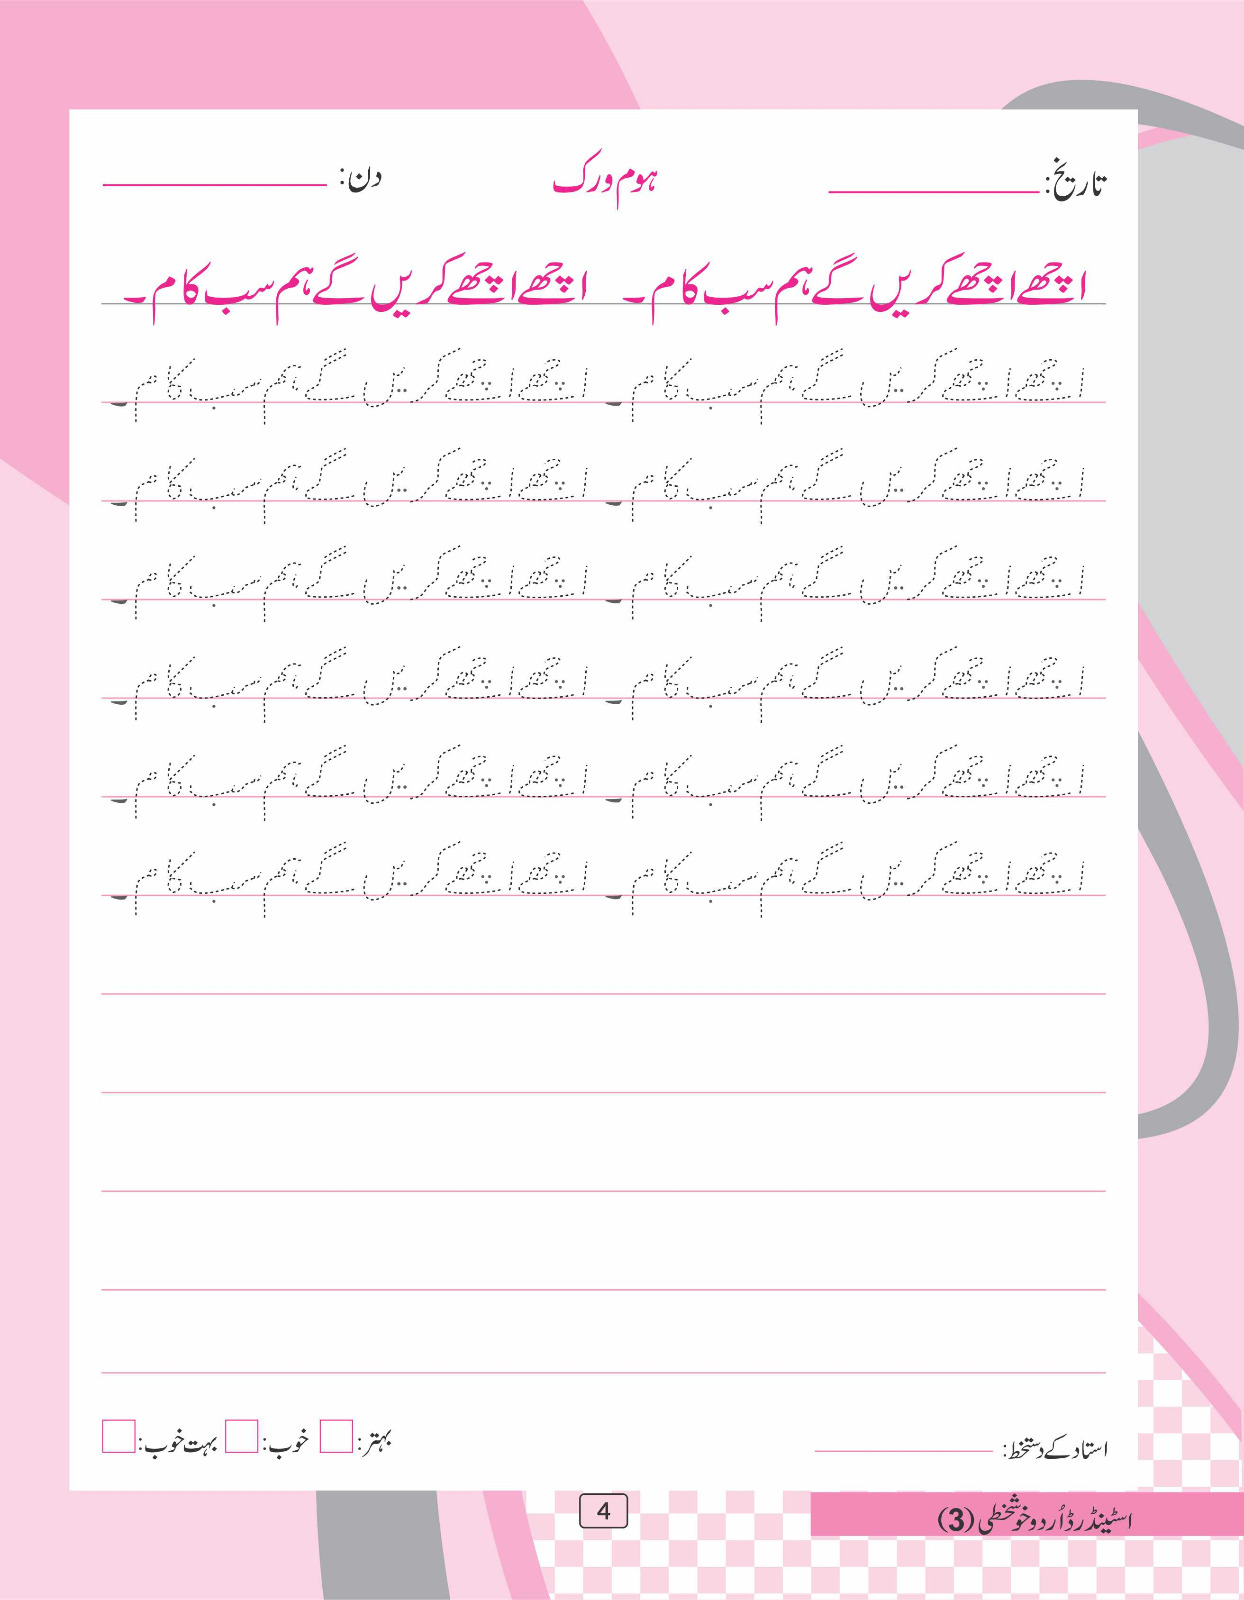 تاریخ: ہوم ورک دن:
اچھے اچھے کریں گے ہم سب کام۔ اچھے اچھے کریں گے ہم سب کام۔
اچھے اچھے کریں گے ہم سب کام۔ اچھے اچھے کریں گے ہم سب کام۔
اچھے اچھے کریں گے ہم سب کام۔ اچھے اچھے کریں گے ہم سب کام۔
اچھے اچھے کریں گے ہم سب کام۔ اچھے اچھے کریں گے ہم سب کام۔
اچھے اچھے کریں گے ہم سب کام۔ اچھے اچھے کریں گے ہم سب کام۔
اچھے اچھے کریں گے ہم سب کام۔ اچھے اچھے کریں گے ہم سب کام۔
اچھے اچھے کریں گے ہم سب کام۔ اچھے اچھے کریں گے ہم سب کام۔
استاد کے دستخط: بہتر: خوب: بہت خوب:
اسٹینڈرڈ اُردو خوشخطی (3) 4